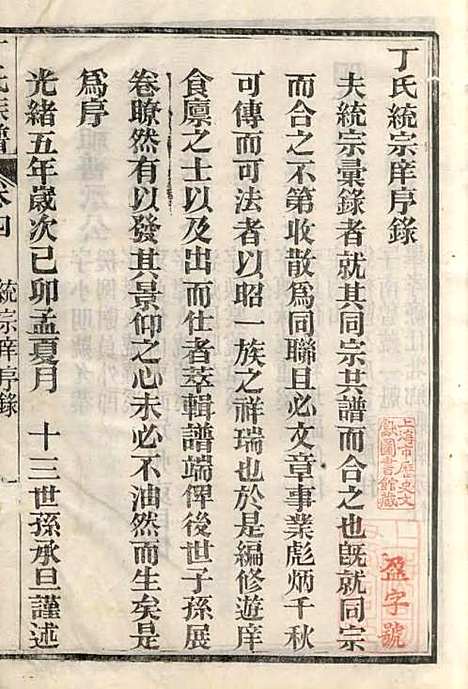 丁氏統宗庠序錄
夫統宗彙錄者就其同宗共譜而合之也旣就同宗
而合之不第收散爲同聯且必文章事業彪炳千秋
可傳而可法者以昭一族之祥瑞也於是編修遊庠
食廩之士以及出而仕者萃輯譜端俾後世子孫展
卷瞭然有以發其景仰之心未必不油然而生矣是
爲序
光緒五年歲次己卯孟夏月 十三世孫承旦謹述
丁氏族譜 卷四 統宗庠序錄
上海市歷史文獻圖書館藏
盈字號